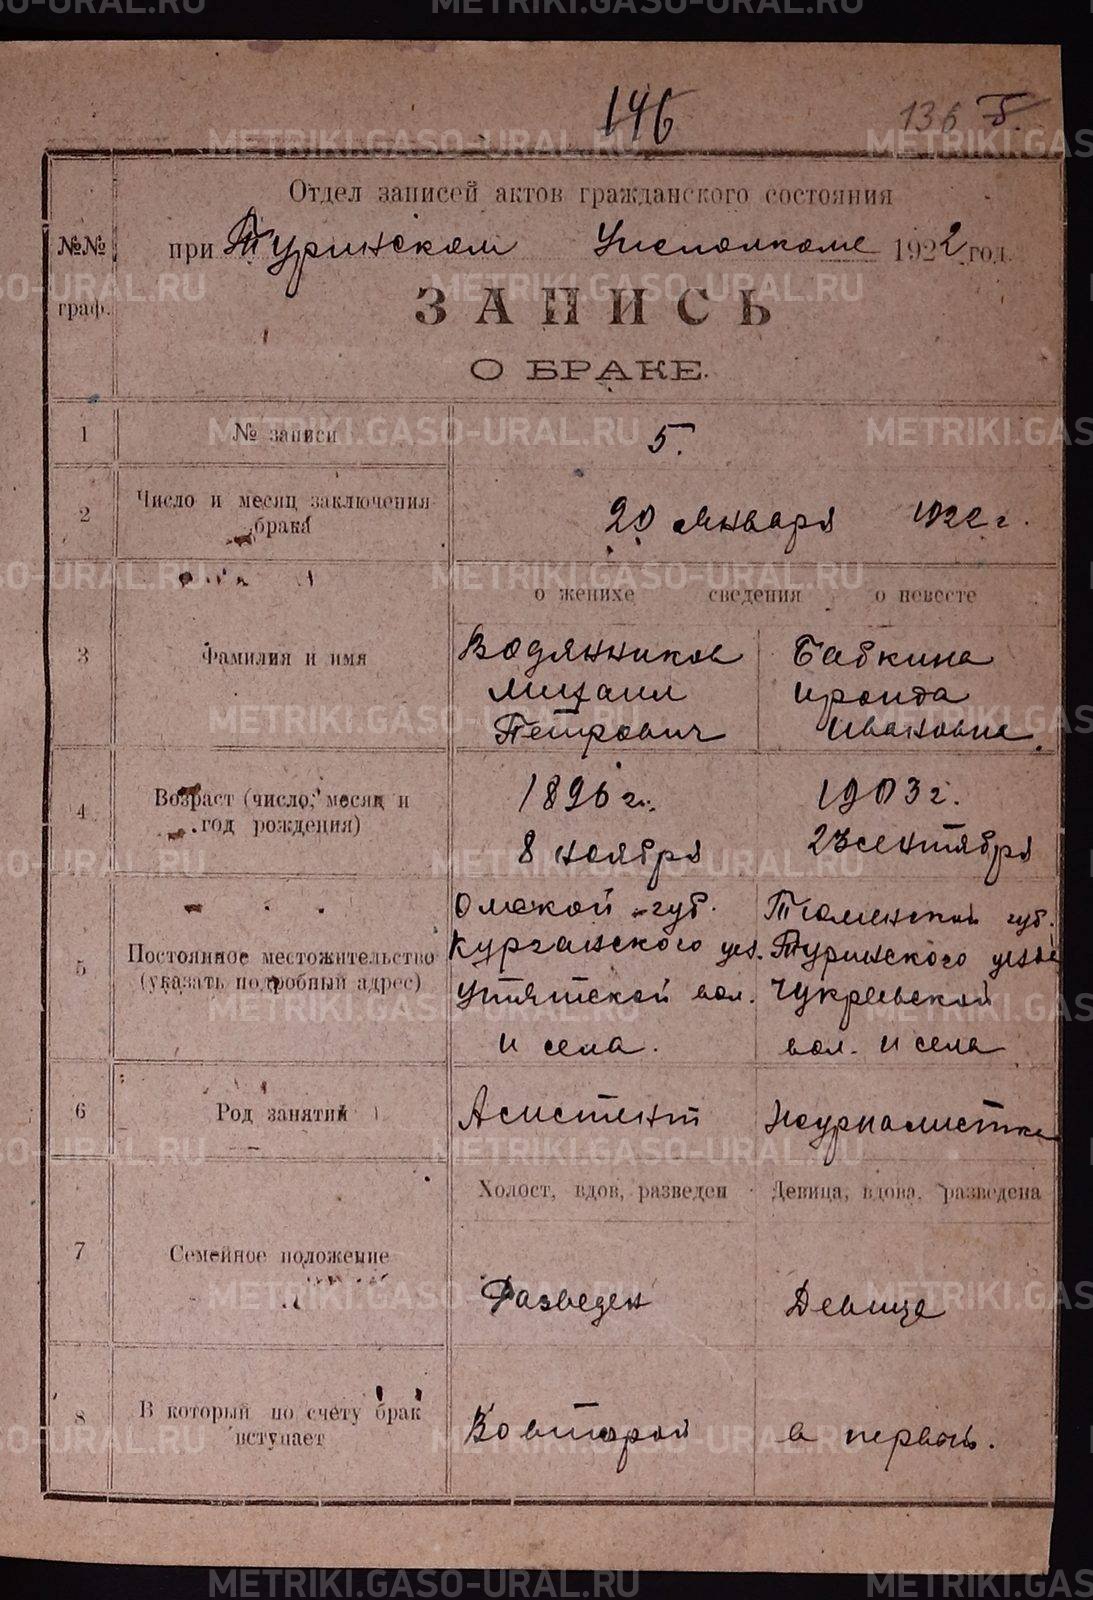 METRIKI.GASO-URAL.RU
146
136
Отдел записей актов гражданского состояния
№№ граф.
при Туринском Исполкоме 1922 год.
ЗАПИСЬ
О БРАКЕ.
1 № записи 5.
2 Число и месяц заключения брака 20 января 1922 г.
о женихе сведения о невесте
3 Фамилия и имя
Водянников Бабкина
Михаил Ираида
Петрович Ивановна.
4 Возраст (число, месяц и год рождения)
1896 г. 1903 г.
8 ноября 23 сентября
5 Постоянное местожительство (указать подробный адрес)
Омской губ. Тюменской губ.
Курганского уез. Туринского уезда
Утятской вол. Чукреевской
и села. вол. и села
6 Род занятий Асистент Журналистка
Холост, вдов, разведен Девица, вдова, разведена
7 Семейное положение Разведен Девица
8 В который по счету брак вступает Во второй в первый.
METRIKI.GASO-URAL.RU